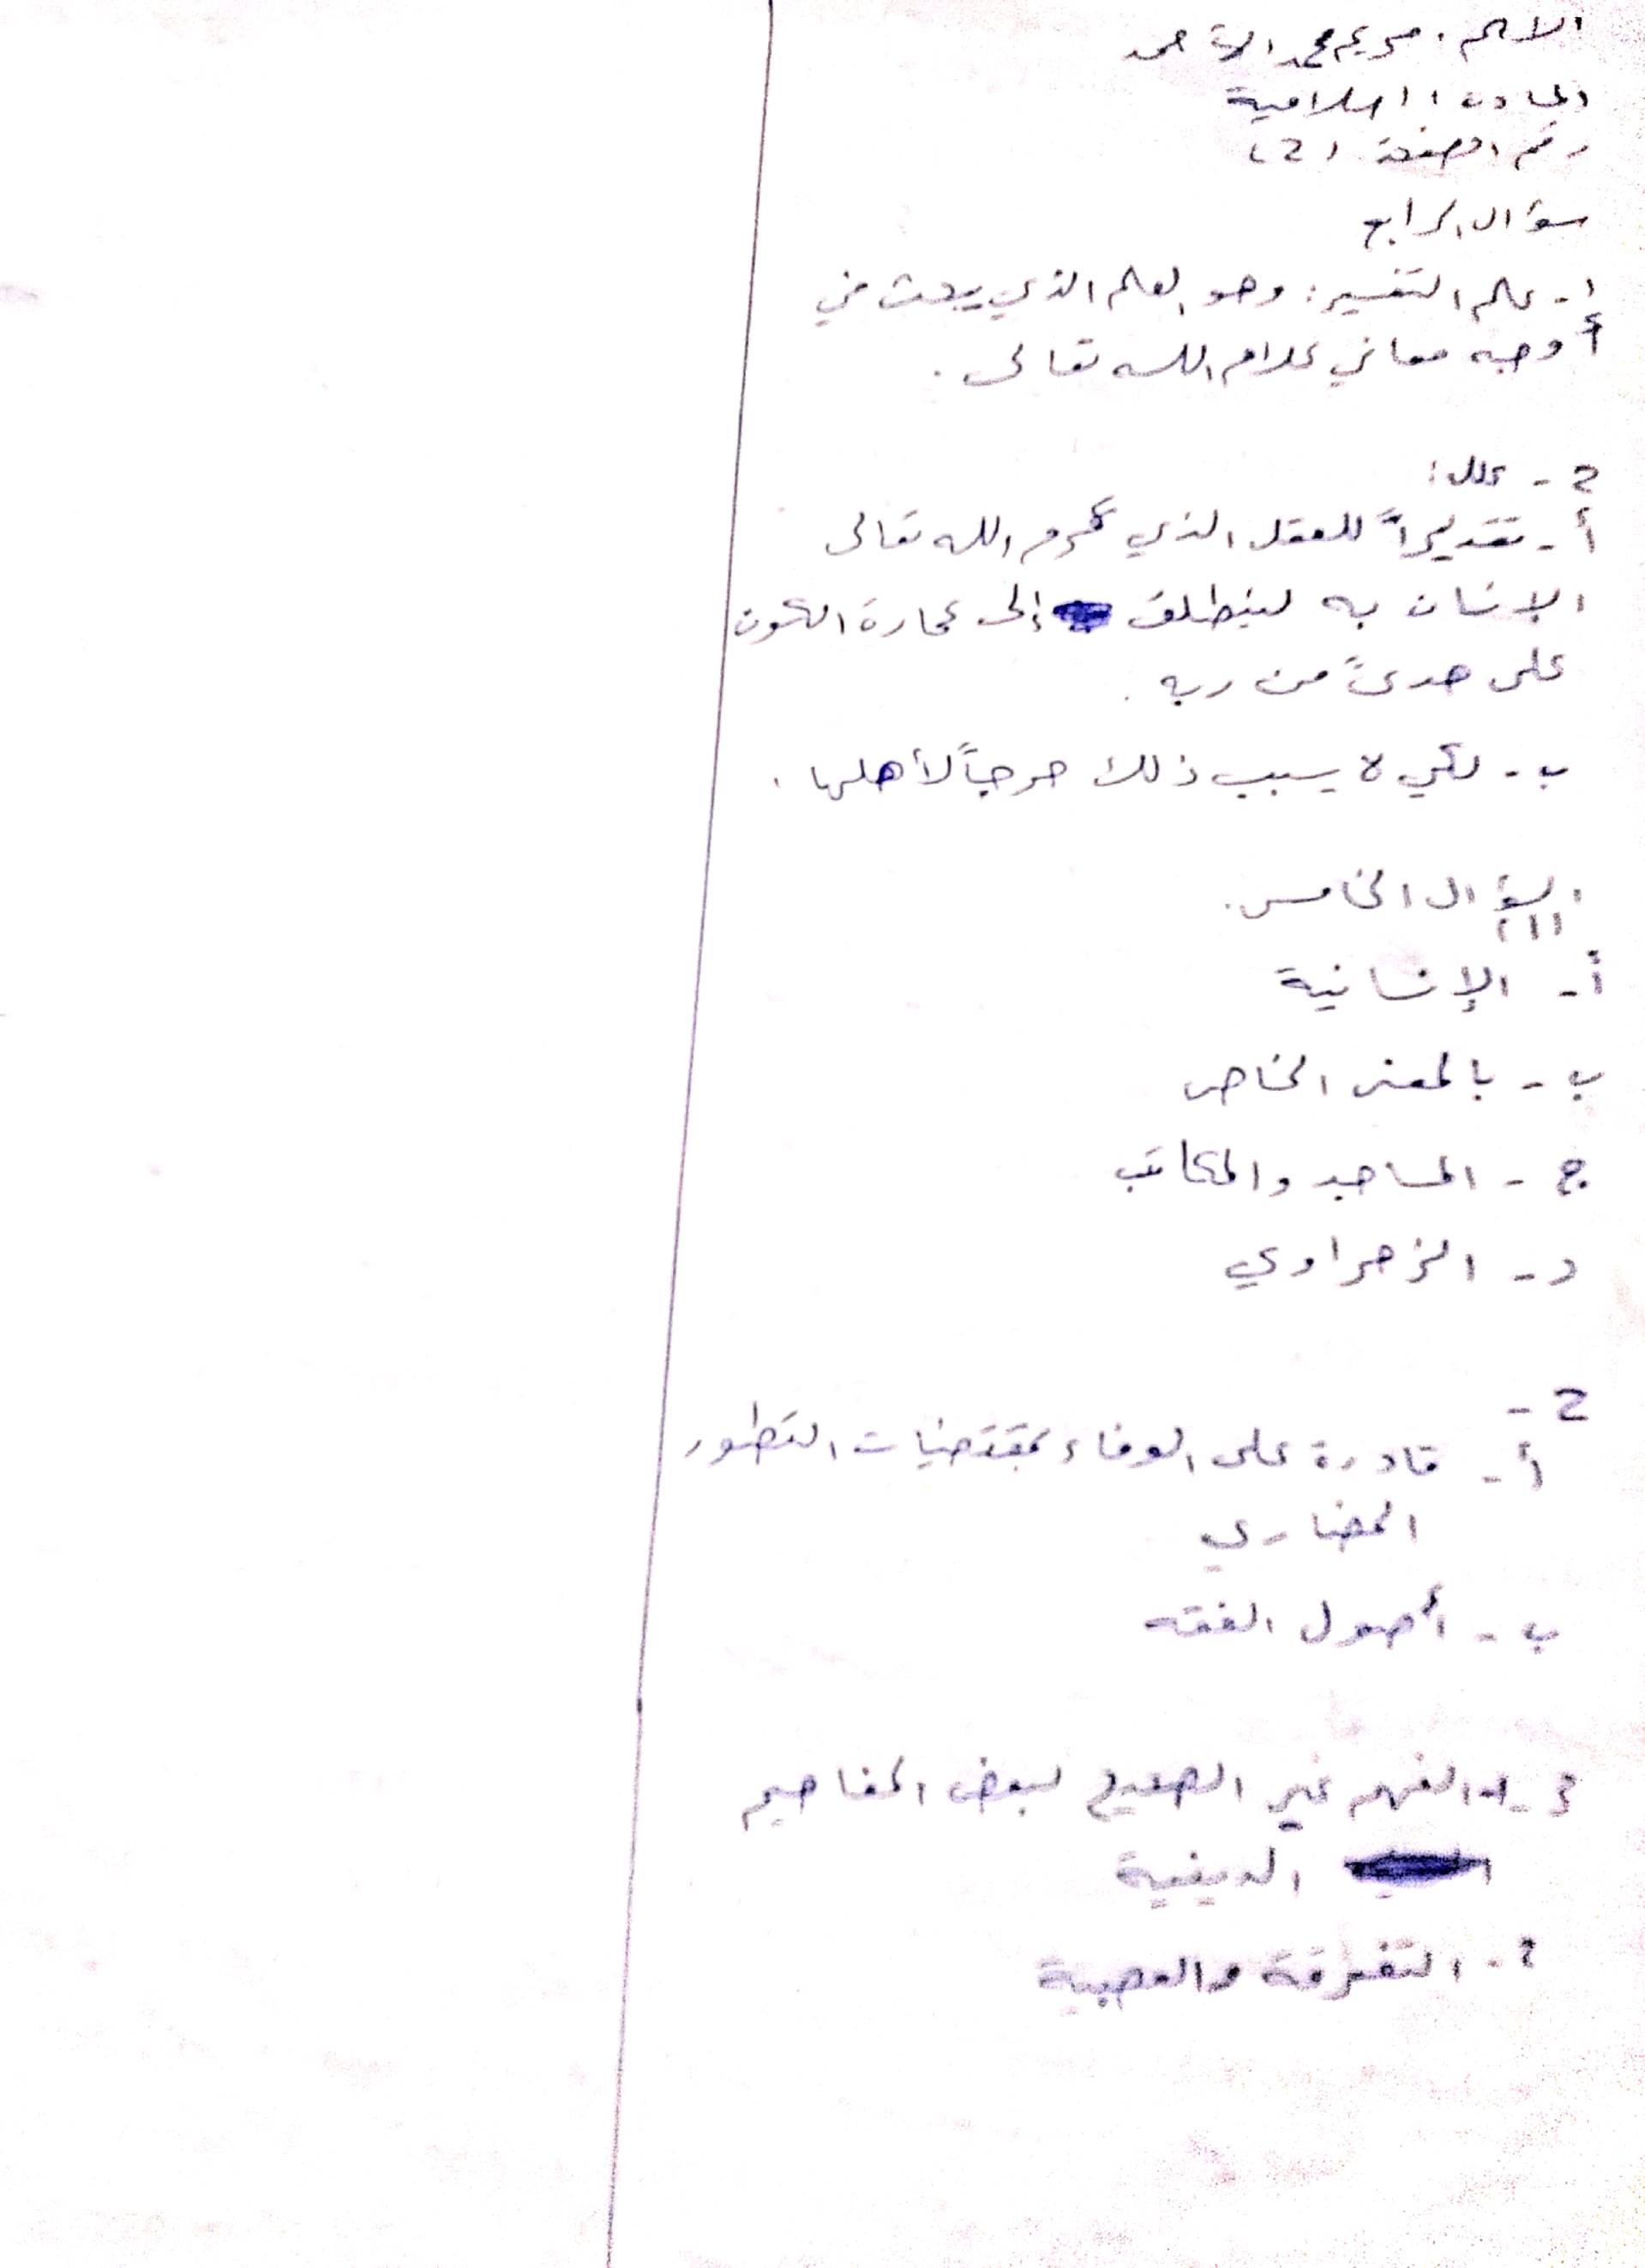 الاسم : مريم محمد الأحمد
المادة : اسلامية
رقم الصفحة (2)
سؤال الرابع
1- علم التفسير : وهو العلم الذي يبحث في
أوجه معاني كلام الله تعالى .
2 - علل :
أ - تقديراً للعقل الذي كرم الله تعالى
الإنسان به لينطلق إلى عمارة الكون
على هدىً من ربه .
ب - لكي لا يسبب ذلك حرجاً لأهلها .
السؤال الخامس .
(1)
أ - الإنسانية
ب - بالمعنى الخاص
ج - المساجد والمكاتب
د - الزهراوي
2 -
أ - قادرة على الوفاء بمقتضيات التطور
الحضاري
ب - أصول الفقه
3 - الفهم غير الصحيح لبعض المفاهيم
الدينية
2 - التفرقة والعصبية